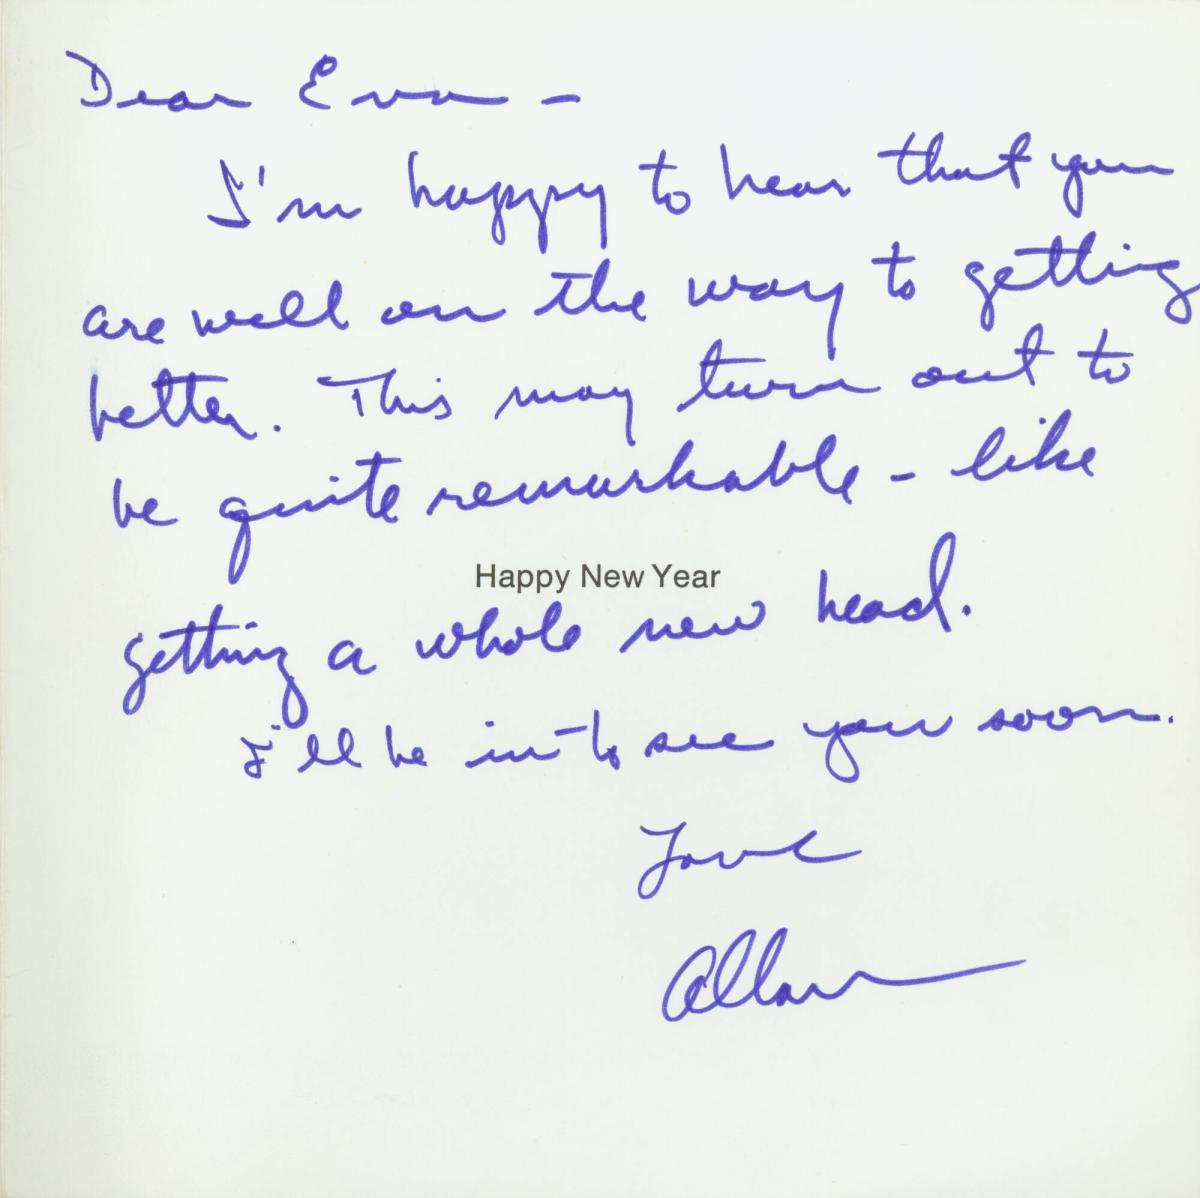 Dear Eva -
I'm happy to hear that you
are well on the way to getting
better. This may turn out to
be quite remarkable - like
Happy New Year
getting a whole new head.
I'll be in to see you soon.
Love
Allan